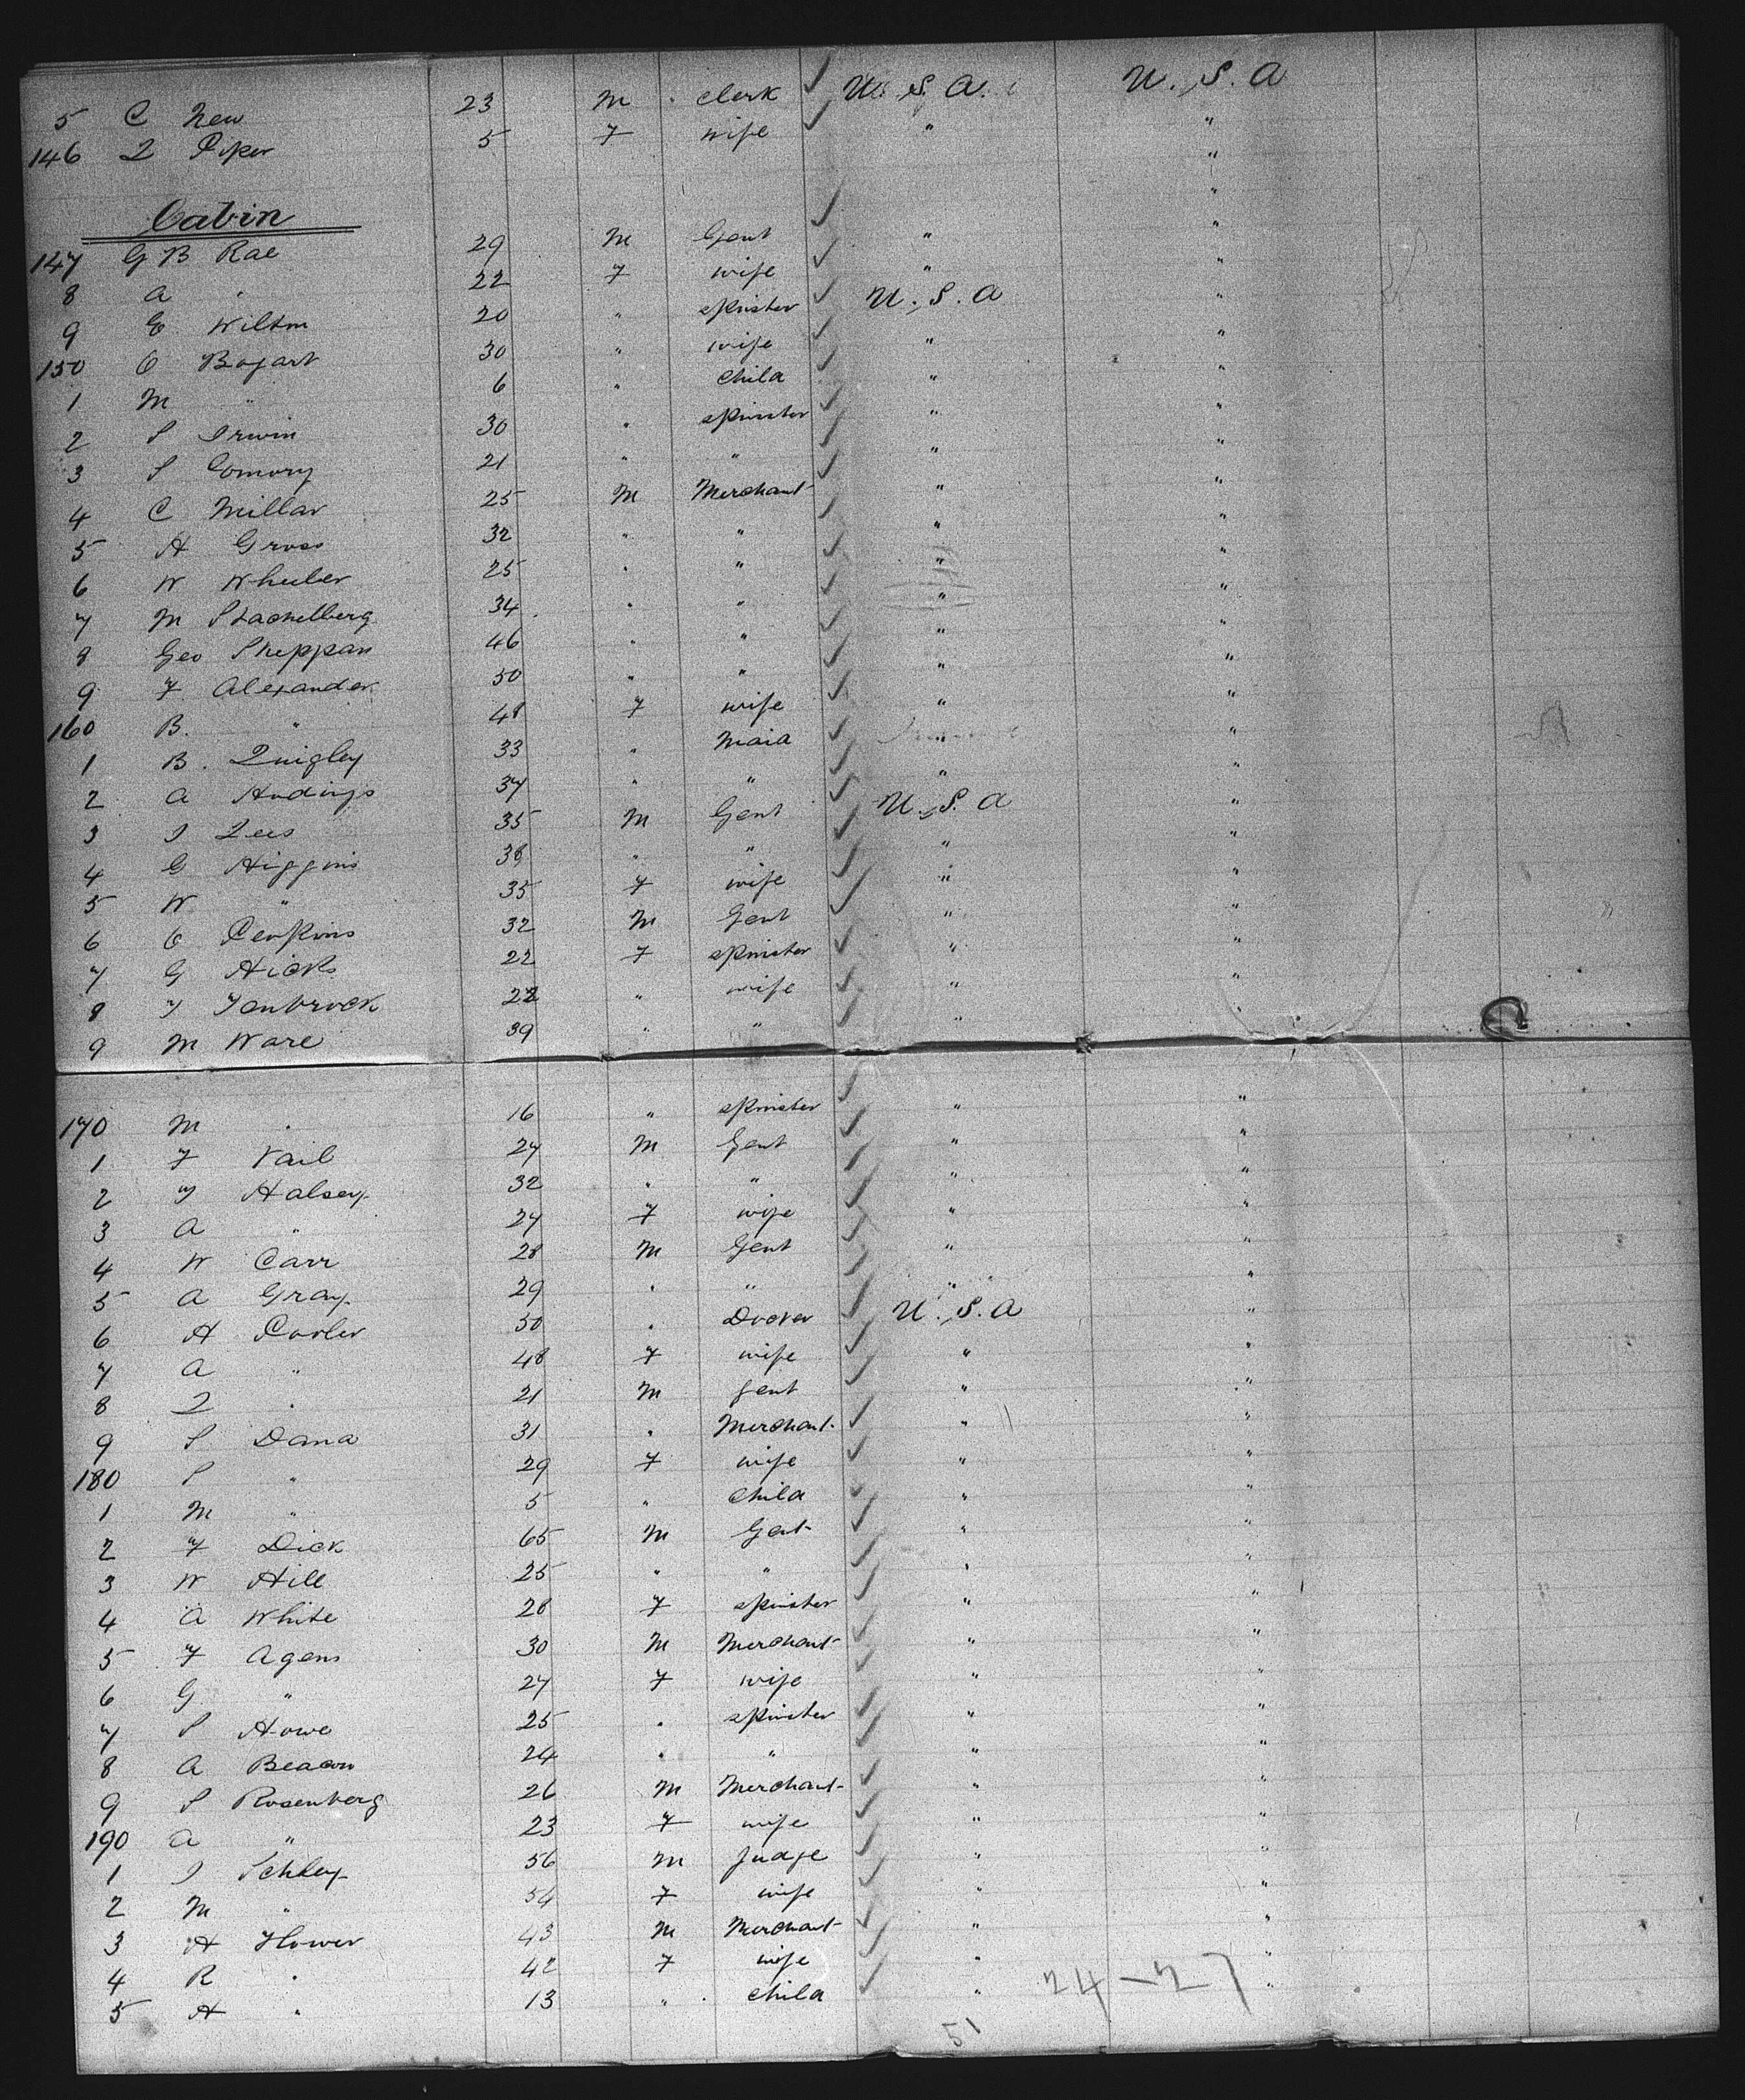 5 C New 23 M clerk U. S. A. U. S. A
146 L Piper 5 F wife " "
Cabin
147 G B Rae 29 M Gent " "
8 A " 22 F wife " "
9 E Wilton 20 " spinster U. S. A "
150 O Bogart 30 " wife " "
1 M " 6 " Child " "
2 S Irwin 30 " spinster " "
3 S Gomory 21 " " " "
4 C Millar 25 M Merchant " "
5 H Gross 32 " " " "
6 W Wheeler 25 " " " "
7 M Stachelberg 34 " " " "
8 Geo Sheppan 46 " " " "
9 F Alexander 50 " " " "
160 B. " 48 F wife " "
1 B. Quigley 33 " Maid " "
2 A 37 " " " "
3 J Lees 35 M Gent U. S. A "
4 G Higgins 38 " " " "
5 W " 35 F wife " "
6 O Perkins 32 M Gent " "
7 G Hicks 22 F spinster " "
8 F Tenbrock 22 " wife " "
9 M Ware 39 " " "
170 M " 16 " spinster " "
1 F Vail 27 M Gent " "
2 F Halsey 32 " " " "
3 A " 27 F wife " "
4 W Carr 28 M Gent " "
5 A Gray 29 " " " "
6 H 50 " Drover U. S. A "
7 A " 48 F wife " "
8 L " 21 M gent " "
9 S. Dana 31 " Merchant " "
180 S " 29 F wife " "
1 M " 5 " Child " "
2 F Dick 65 M Gent " "
3 W Hill 25 " " " "
4 A White 28 F spinster " "
5 F Agens 30 M Merchant " "
6 G " 27 F wife " "
7 S Howe 25 " spinster " "
8 A Beacon 24 " " " "
9 S Rosenberg 26 M Merchant " "
190 A " 23 F wife " "
1 J Schley 56 M Judge " "
2 M " 54 F wife " "
3 H Hower 43 M Merchant " "
4 R " 42 F wife " "
5 H " 13 " Child " "
24-27
51